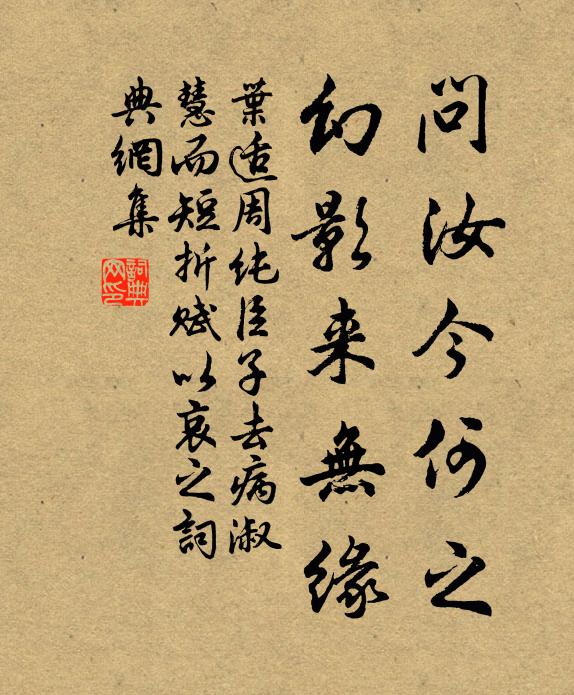 問汝今何之
幻影来無緣
葉適周純臣子去病淑
慧而短折賦以哀之詞
典網集
詞典
网印